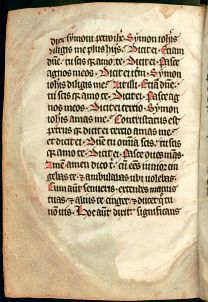 diligis me plus hijs. Dicit ei. Etiam
dne. tu scis q amo te. Dicit ei. Pasce
agnos meos. Dicit ei itm. Symon
iohis diligis me. Ait illi. Etia dne.
tu scis q amo te. Dicit ei. Pasce ag
nos meos. Dicit ei tercio. Symon
iohis amas me. Contristatus est
petrus q dicit ei tercio amas me.
et dicit ei. Dne tu omia scis. tu scis
q amo te. Dicit ei. Pasce oues meas.
Amen amen dico t. cu ees iunior cin
gebas te. et ambulabas ubi uolebas.
Cum aut senueris. extendes manus
tuas. et alius te cinget. et ducet q tu
no uis. Hoc aut dixit significans